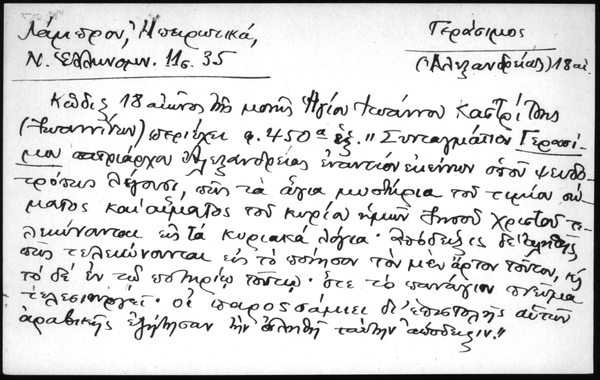 Λάμπρου, Ἠπειρωτικά,
Ν. Ἑλληνομν. 11 σ. 35
Γεράσιμος
(Ἀλεξανδρείας) 18 αἰ.
Κῶδιξ 18 αἰῶνος τῆς μονῆς Ἁγίου Ἰωάννου Καστρίτσης
(Ἰωαννίνων) περιέχει φ. 450α ἑξ. "Συνταγμάτιον Γερασί-
μου πατριάρχου Ἀλεξανδρείας ἐναντίον ἐκείνων ὁποῦ ψευδο-
τρόπως λέγουσι, πῶς τὰ ἅγια μυστήρια τοῦ τιμίου σώ-
ματος καὶ αἵματος τοῦ κυρίου ἡμῶν Ἰησοῦ Χριστοῦ τε-
λειώνονται εἰς τὰ κυριακὰ λόγια· ἀπόδειξις δὲ ἀληθὴς
πῶς τελειώνονται εἰς τὸ ποίησον τὸν μὲν ἄρτον τοῦτον, κὴ
τὸ δὲ ἐν τῷ ποτηρίῳ τούτῳ· ὅτε τὸ πανάγιον πνεῦμα
τελεσιουργεῖ· οἱ παροσσάμιει δι' ἐπιστολῆς αὐτῶν
ἀραβικῆς ἐζήτησαν τὴν ἀληθῆ ταύτην ἀπόδειξιν."